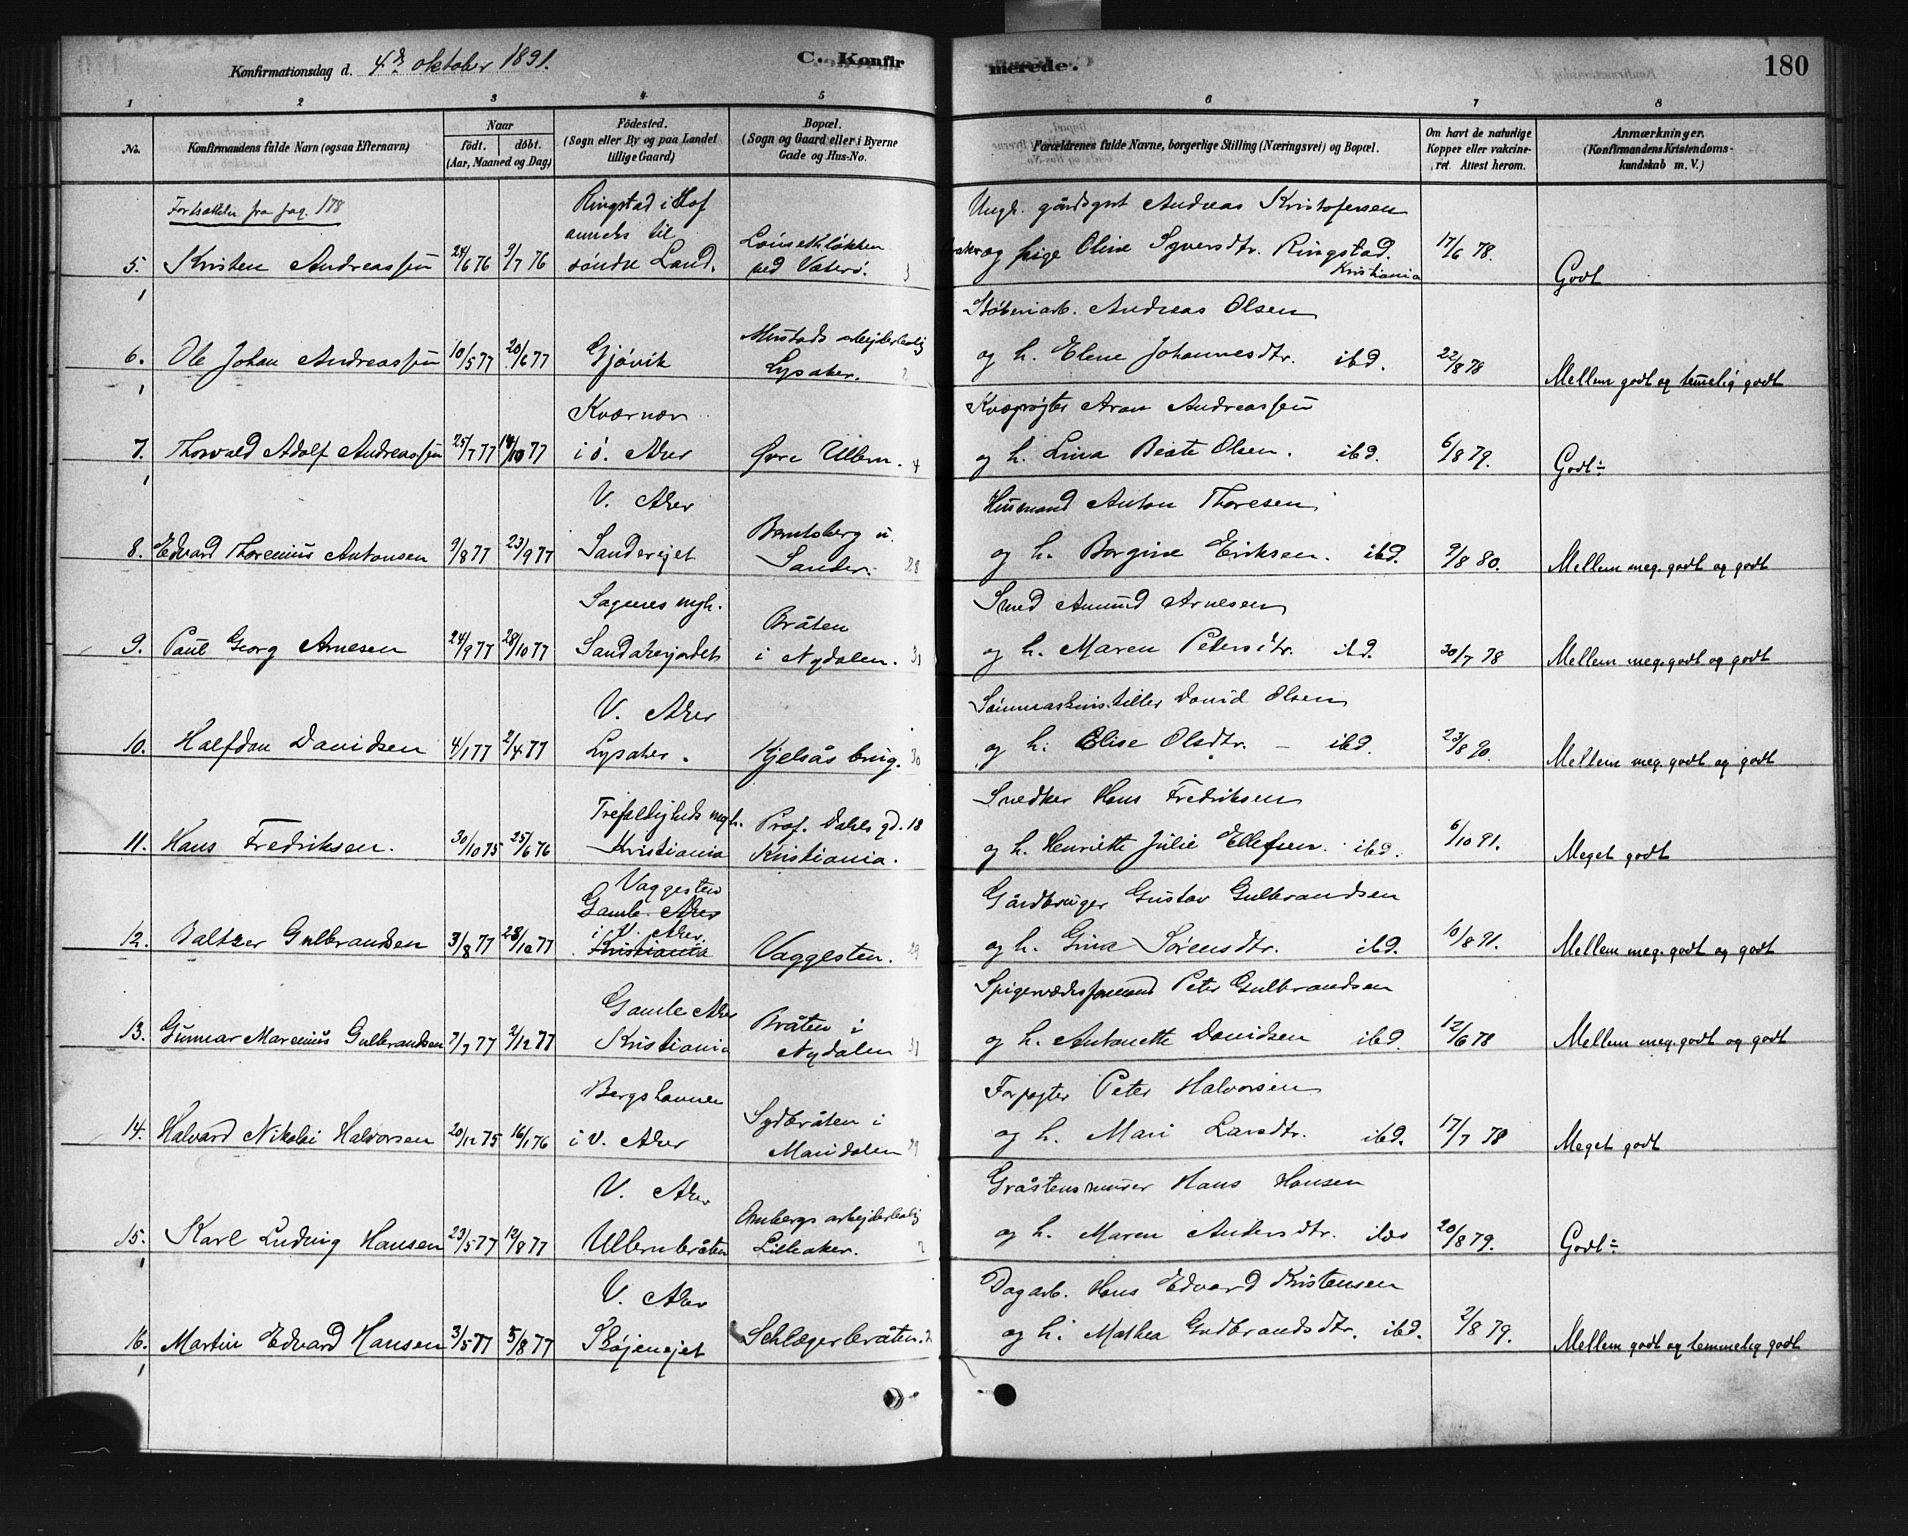 Konfirmationsdag d. 4de oktober 1891.
C. Konfirmerede.
180
1 2 3 4 5 6 7 8
No.
Konfirmandens fulde Navn (ogsaa Efternavn)
Naar
födt. döbt.
(Aar, Maaned og Dag)
Födested.
(Sogn eller By og paa Landet
tillige Gaard)
Bopæl.
(Sogn og Gaard eller i Byerne
Gade og Hus-No.
Forældrenes fulde Navne, borgerlige Stilling (Næringsvei) og Bopæl.
Om havt de naturlige
Kopper eller vakcine-
ret. Attest herom.
Anmærkninger.
(Konfirmandens Kristendoms-
kundskab m. V.)
Fortsættelse fra pag. 178
Ringstad i Hof
anneks til
Ungk. gårdsgut Andreas Kristofersen
5. Kristen Andreassen 24/6 76 9/7 76 söndre Land. Löiseth løkken
ved Vækerö. og pige Oline Syversdtr. Ringstad.
Kristiania 17/6 78. Godt
Støberiarb. Andreas Olsen
6. Ole Johan Andreassen 10/5 77 20/6 77 Gjövik Mustads arbejderbolig
Lysaker. og h. Elene Johannesdtr. ibd. 22/8 78 Mellem godt og temelig godt
Kværner
Kvægrøgter Aron Andreassen
7. Thorvald Adolf Andreassen 25/7 77 14/10 77 i ö. Aker Øvre Ullern. 4 og h. Lina Beate Olsen. ibd. 6/8 79. Godt÷
V. Aker
Husmand Anton Thoresen
8. Edvard Thorenius Antonsen 9/8 77 23/9 77 Sanderejet Berntsberg u.
Sander. 28 og h. Borgine Eriksen. ibd. 9/8 80. Mellem meg. godt og godt
Sagenes mgh.
Smed Amund Arnesen
9. Paul Georg Arnesen 24/9 77 28/10 77 Sandakerjordet Bråten
i Nydalen. 31 og h. Maren Petersdtr. ibd. 30/7 78 Mellem meg. godt og godt
V. Aker
David Olsen
10. Halfdan Davidsen 4/1 77 2/4 77 Lysaker. Kjelsås brug. 30 og h. Elise Olsdtr. – ibd. 23/8 90. Mellem meg. godt og godt
Trefoldigheds mgh.
Snedker Hans Fredriksen
11. Hans Fredriksen. 30/10 75 25/6 76 Kristiania Prof. Dahls gd. 18
Kristiania. og h. Henriette Julie Ellefsen. ibd. 6/10 91. Meget godt
Vaggesten
Gamle Aker
i V. Aker.
Gårdbruger Gustav Gulbrandsen
12. Baltzer Gulbrandsen 3/8 77 28/10 77 Kristiania Vaggesten. 29 og h. Gina Sørensdtr. ibd. 10/8 91. Mellem meg. godt og godt
Gamle Aker
Spigerværksformand Peter Gulbrandsen
13. Gunnar Marenius Gulbrandsen 7/7 77 2/12 77 Kristiania Bråten i
Nydalen 31 og h. Antonette Davidsen ibd. 12/6 78 Mellem meg. godt og godt
Bergshavnen
Forpagter Peter Halvorsen
14. Halvard Nikolai Halvorsen 20/12 75 16/1 76 i V. Aker Sydbråten i
Maridalen 29 og h. Mari Larsdtr. ibd. 17/7 78 Meget godt
V. Aker
Gråstensmurer Hans Hansen
15. Karl Ludvig Hansen 23/5 77 12/8 77 Ullernbråten Ambergs arbejderbolig
Lilleaker. 2 og h. Maren Andersdtr. ibd 20/8 79. Godt÷
V. Aker
Dagarb. Hans Edvard Kristensen
16. Martin Edvard Hansen 3/5 77 5/8 77 Skøjenejet Schlægerbråten. 2 og h. Mathea Gudbrandsdtr. ibd. 2/8 79. Mellem godt og temmelig godt